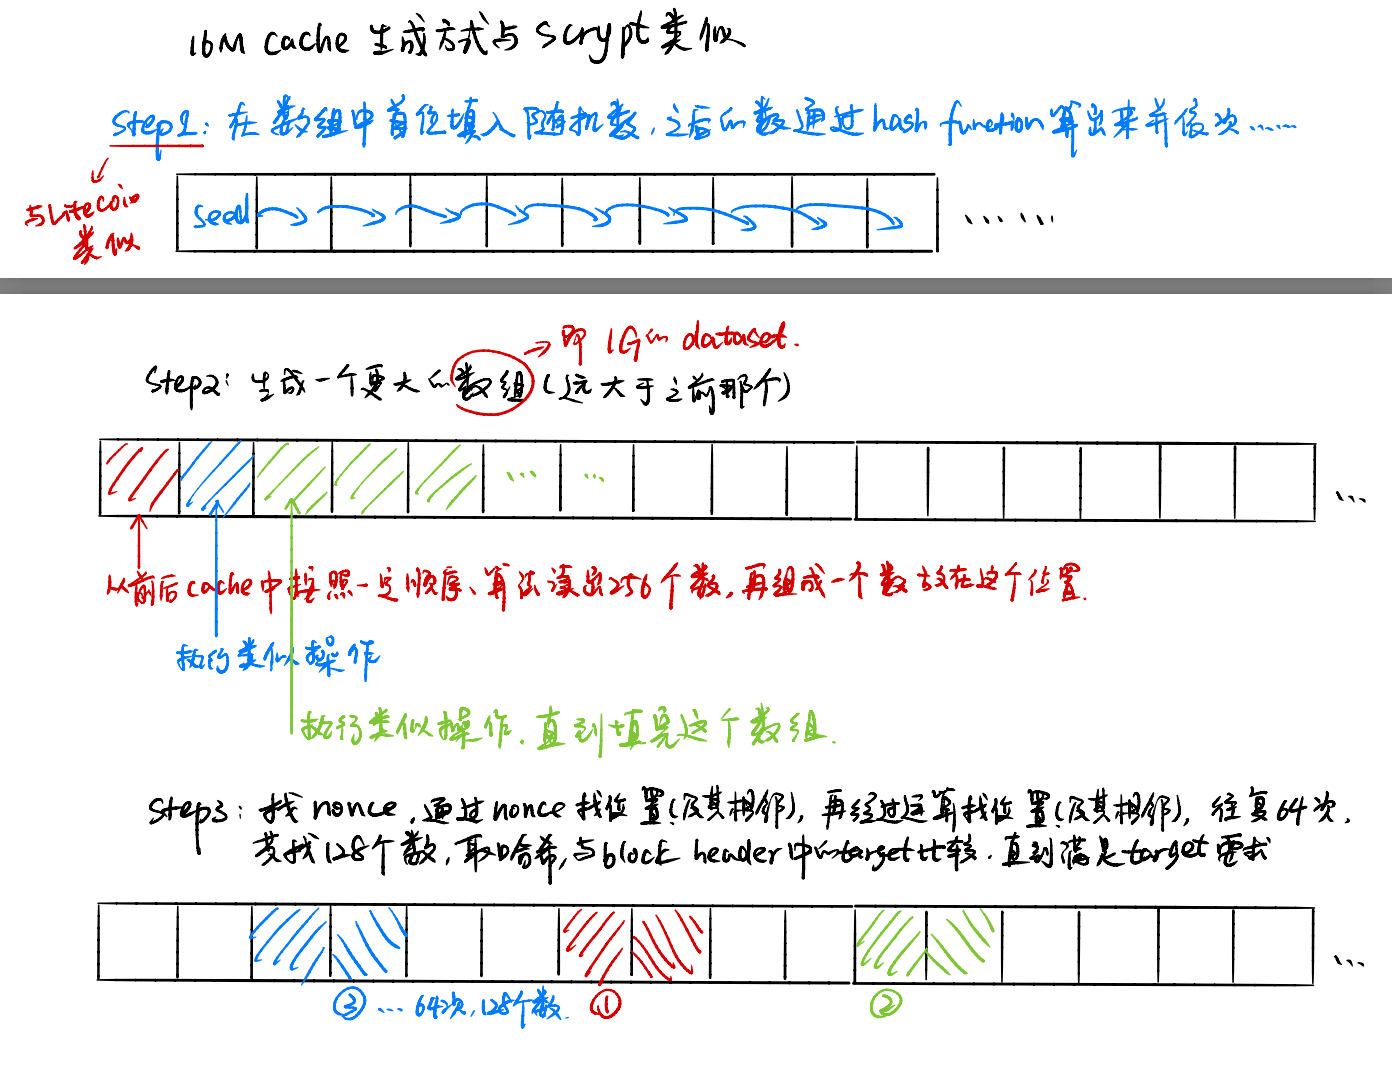 16M cache 生成方式与 scrypt 类似
Step1: 在数组中首位填入随机数,之后的数通过hash function算出来并依次……
与Litecoin
类似
seed
……
即 1G的 dataset.
Step2: 生成一个更大的数组(远大于之前那个)
… … …
从前后cache中按照一定顺序、算法读出256个数,再组成一个数放在这个位置.
执行类似操作
执行类似操作,直到填完这个数组.
Step3: 找nonce,通过nonce找位置(及其相邻),再经过运算找位置(及其相邻),往复64次,
共找128个数,取哈希,与block header中的target比较.直到满足target要求
…
③ … 64次,128个数. ① ②